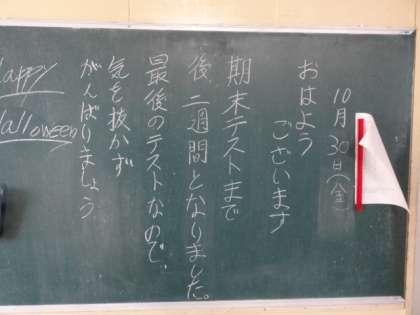 10月30日(金)
おはよう
ございます
期末テストまで
後二週間となりました。
最後のテストなので、
気を抜かず
がんばりましょう
Happy
Halloween